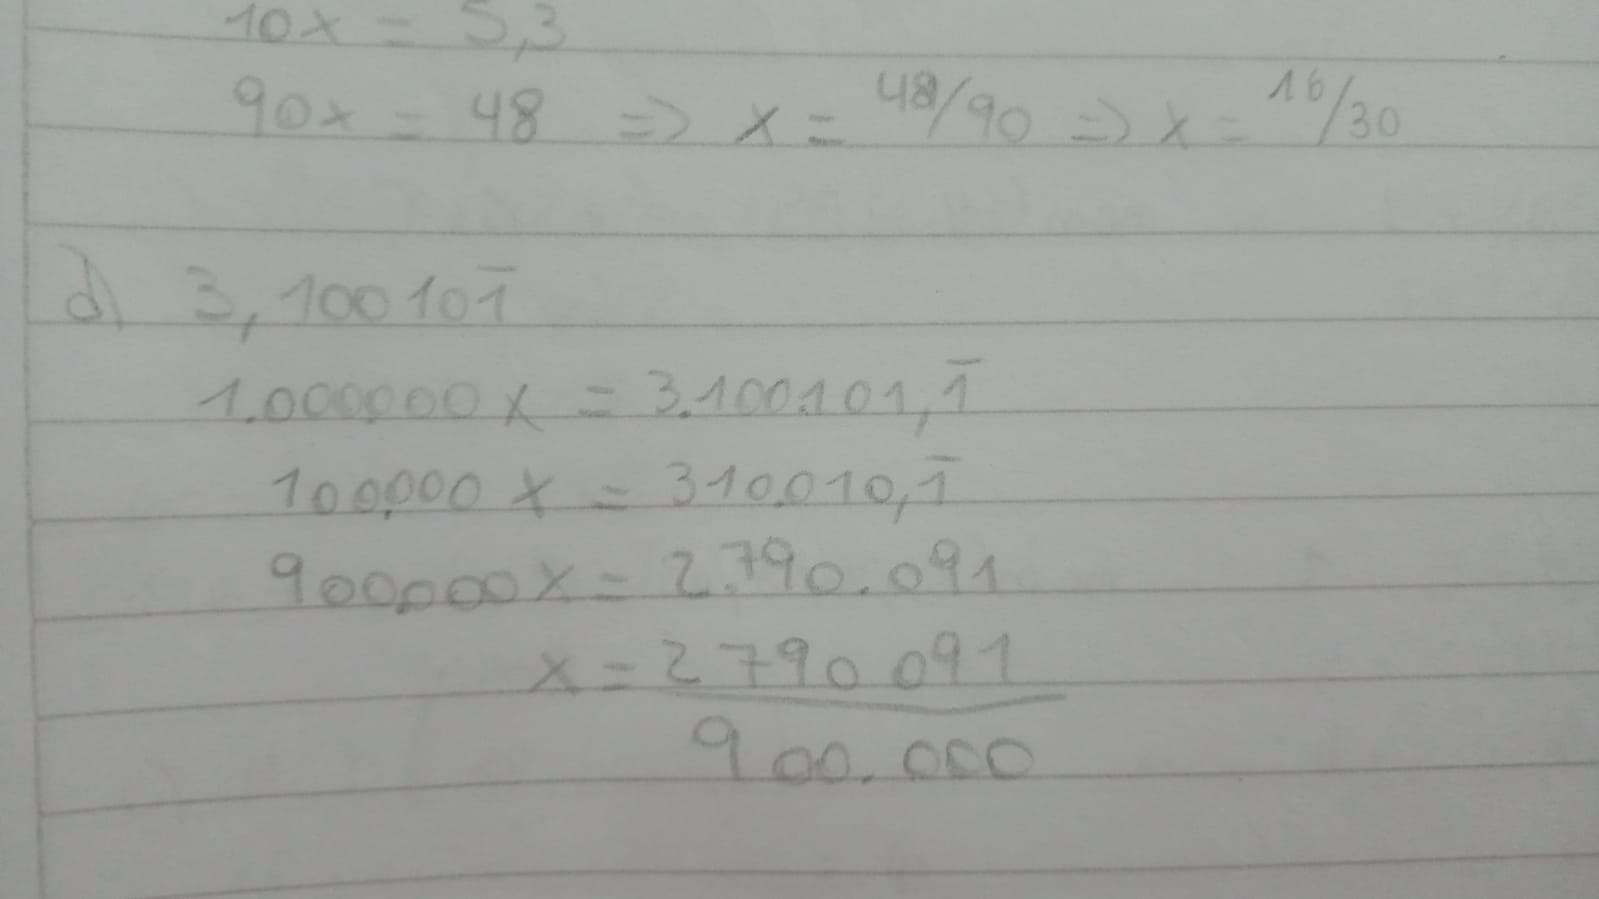 10x = 5,3
90x = 48 => x = 48/90 => x = 16/30
d) 3,100101̅
1.000000x = 3.100.101,1̅
100.000x = 310.010,1̅
900.000x = 2.790.091
x = 2790091
900.000